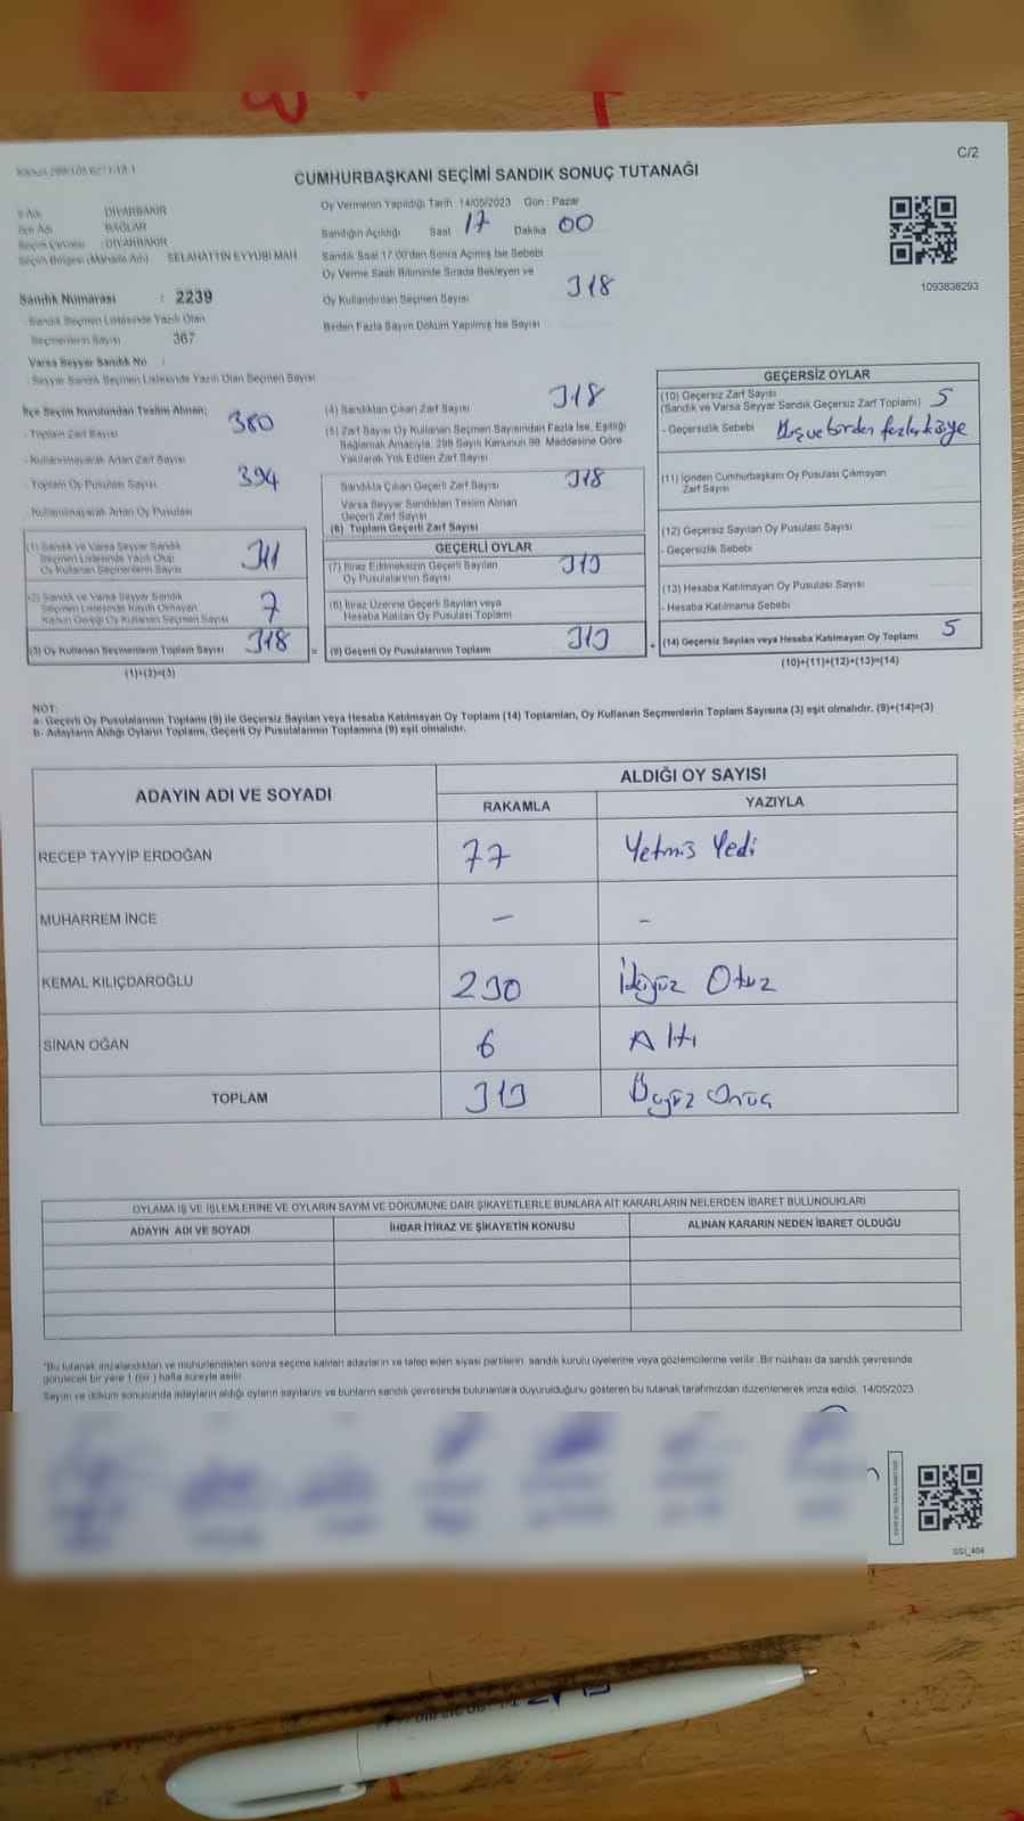 C/2
CUMHURBAŞKANI SEÇİMİ SANDIK SONUÇ TUTANAĞI
İl Adı DİYARBAKIR
İlçe Adı BAĞLAR
Seçim Çevresi : DİYARBAKIR
Seçim Bölgesi (Mahalle Adı) SELAHATTİN EYYUBİ MAH
Sandık Numarası : 2239
Sandık Seçmen Listesinde Yazılı Olan
Seçmenlerin Sayısı 367
Varsa Seyyar Sandık No :
Seyyar Sandık Seçmen Listesinde Yazılı Olan Seçmen Sayısı
Oy Vermenin Yapıldığı Tarih : 14/05/2023 Gün : Pazar
Sandığın Açıldığı Saat 17 Dakika 00
Sandık Saat 17.00'den Sonra Açılmış İse Sebebi
Oy Verme Saati Bitiminde Sırada Bekleyen ve
Oy Kullandırılan Seçmen Sayısı 318
Birden Fazla Sayım Döküm Yapılmış İse Sayısı
1093838293
İlçe Seçim Kurulundan Teslim Alınan;
- Toplam Zarf Sayısı 380
- Kullanılmayarak Artan Zarf Sayısı
- Toplam Oy Pusulası Sayısı 394
- Kullanılmayarak Artan Oy Pusulası
(1) Sandık ve Varsa Seyyar Sandık
Seçmen Listesinde Yazılı Olup
Oy Kullanan Seçmenlerin Sayısı 311
(2) Sandık ve Varsa Seyyar Sandık
Seçmen Listesinde Kayıtlı Olmayan
Kanun Gereği Oy Kullanan Seçmen Sayısı 7
(3) Oy Kullanan Seçmenlerin Toplam Sayısı 318
(1)+(2)=(3)
(4) Sandıktan Çıkan Zarf Sayısı 318
(5) Zarf Sayısı Oy Kullanan Seçmen Sayısından Fazla İse, Eşitliği
Sağlamak Amacıyla, 298 Sayılı Kanunun 98. Maddesine Göre
Yakılarak Yok Edilen Zarf Sayısı
Sandıkta Çıkan Geçerli Zarf Sayısı 318
Varsa Seyyar Sandıktan Teslim Alınan
Geçerli Zarf Sayısı
(6) Toplam Geçerli Zarf Sayısı
GEÇERLİ OYLAR
(7) İtiraz Edilmeksizin Geçerli Sayılan
Oy Pusulalarının Sayısı 313
(8) İtiraz Üzerine Geçerli Sayılan veya
Hesaba Katılan Oy Pusulası Toplamı
= (9) Geçerli Oy Pusulalarının Toplamı 313
GEÇERSİZ OYLAR
(10) Geçersiz Zarf Sayısı 5
(Sandık ve Varsa Seyyar Sandık Geçersiz Zarf Toplamı)
- Geçersizlik Sebebi
(11) İçinden Cumhurbaşkanı Oy Pusulası Çıkmayan
Zarf Sayısı
(12) Geçersiz Sayılan Oy Pusulası Sayısı
- Geçersizlik Sebebi
(13) Hesaba Katılmayan Oy Pusulası Sayısı
- Hesaba Katılmama Sebebi
+ (14) Geçersiz Sayılan veya Hesaba Katılmayan Oy Toplamı 5
(10)+(11)+(12)+(13)=(14)
NOT:
a- Geçerli Oy Pusulalarının Toplamı (9) ile Geçersiz Sayılan veya Hesaba Katılmayan Oy Toplamı (14) Toplamları, Oy Kullanan Seçmenlerin Toplam Sayısına (3) eşit olmalıdır. (9)+(14)=(3)
b- Adayların Aldığı Oyların Toplamı, Geçerli Oy Pusulalarının Toplamına (9) eşit olmalıdır.
ADAYIN ADI VE SOYADI
ALDIĞI OY SAYISI
RAKAMLA YAZIYLA
RECEP TAYYİP ERDOĞAN 77 Yetmiş Yedi
MUHARREM İNCE - -
KEMAL KILIÇDAROĞLU 230 İkiyüz Otuz
SİNAN OĞAN 6 Altı
TOPLAM 313 Üçyüz Onüç
OYLAMA İŞ VE İŞLEMLERİNE VE OYLARIN SAYIM VE DÖKÜMÜNE DAİR ŞİKAYETLERLE BUNLARA AİT KARARLARIN NELERDEN İBARET BULUNDUKLARI
ADAYIN ADI VE SOYADI İHBAR İTİRAZ VE ŞİKAYETİN KONUSU ALINAN KARARIN NEDEN İBARET OLDUĞU
*Bu tutanak imzalandıktan ve mühürlendikten sonra seçime katılan adayların ve talep eden siyasi partilerin sandık kurulu üyelerine veya gözlemcilerine verilir. Bir nüshası da sandık çevresinde
görülecek bir yere 1 (bir) hafta süreyle asılır.
Sayım ve döküm sonucunda adayların aldığı oyların sayılarını ve bunların sandık çevresinde bulunanlara duyurulduğunu gösteren bu tutanak tarafımızdan düzenlenerek imza edildi. 14/05/2023